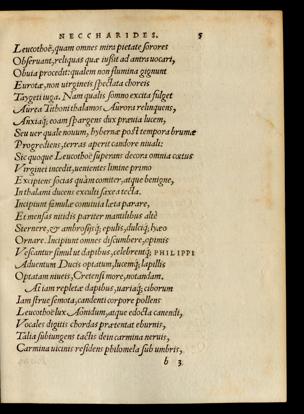 NECCHARIDES. 5
Leucothoë, quam omnes mira pietate sorores
Obseruant, reliquas quæ iussit ad antra uocari,
Obuia procedit: qualem non flumina gignunt
Eurotæ, non uirgineis spectata choreis
Taygeti iuga. Nam qualis somno excita fulget
Aurea Tithoni thalamos Aurora relinquens,
Anxiaq; eoam spargens dux præuia lucem,
Seu uer quale nouum, hybernæ post tempora brumæ
Progrediens, terras aperit candore niuali:
Sic quoque Leucothoë superans decora omnia cœtus
Virginei incedit, uenientes limine primo
Excipiens socias quàm comiter, atque benigne,
In thalami ducens exculti saxea tecta.
Incipiunt famulæ conuiuia læta parare,
Et mensas nitidis pariter mantilibus altè
Sternere, & ambrosijsq; epulis, dulciq; lyæo
Ornare. Incipiunt omnes discumbere, opimis
Vescantur simul ut dapibus, celebrentq; PHILIPPI
Aduentum Ducis optatum, lucemq; lapillis
Optatam niueis, Cretensi more, notandam.
At iam repletæ dapibus, uariaq; ciborum
Iam strue semota, candenti corpore pollens
Leucothoë lux Aonidum, atque edocta canendi,
Vocales digitis chordas prætentat eburnis,
Talia subiungens tactis dein carmina neruis,
Carmina uicinis residens philomela sub umbris,
b 3